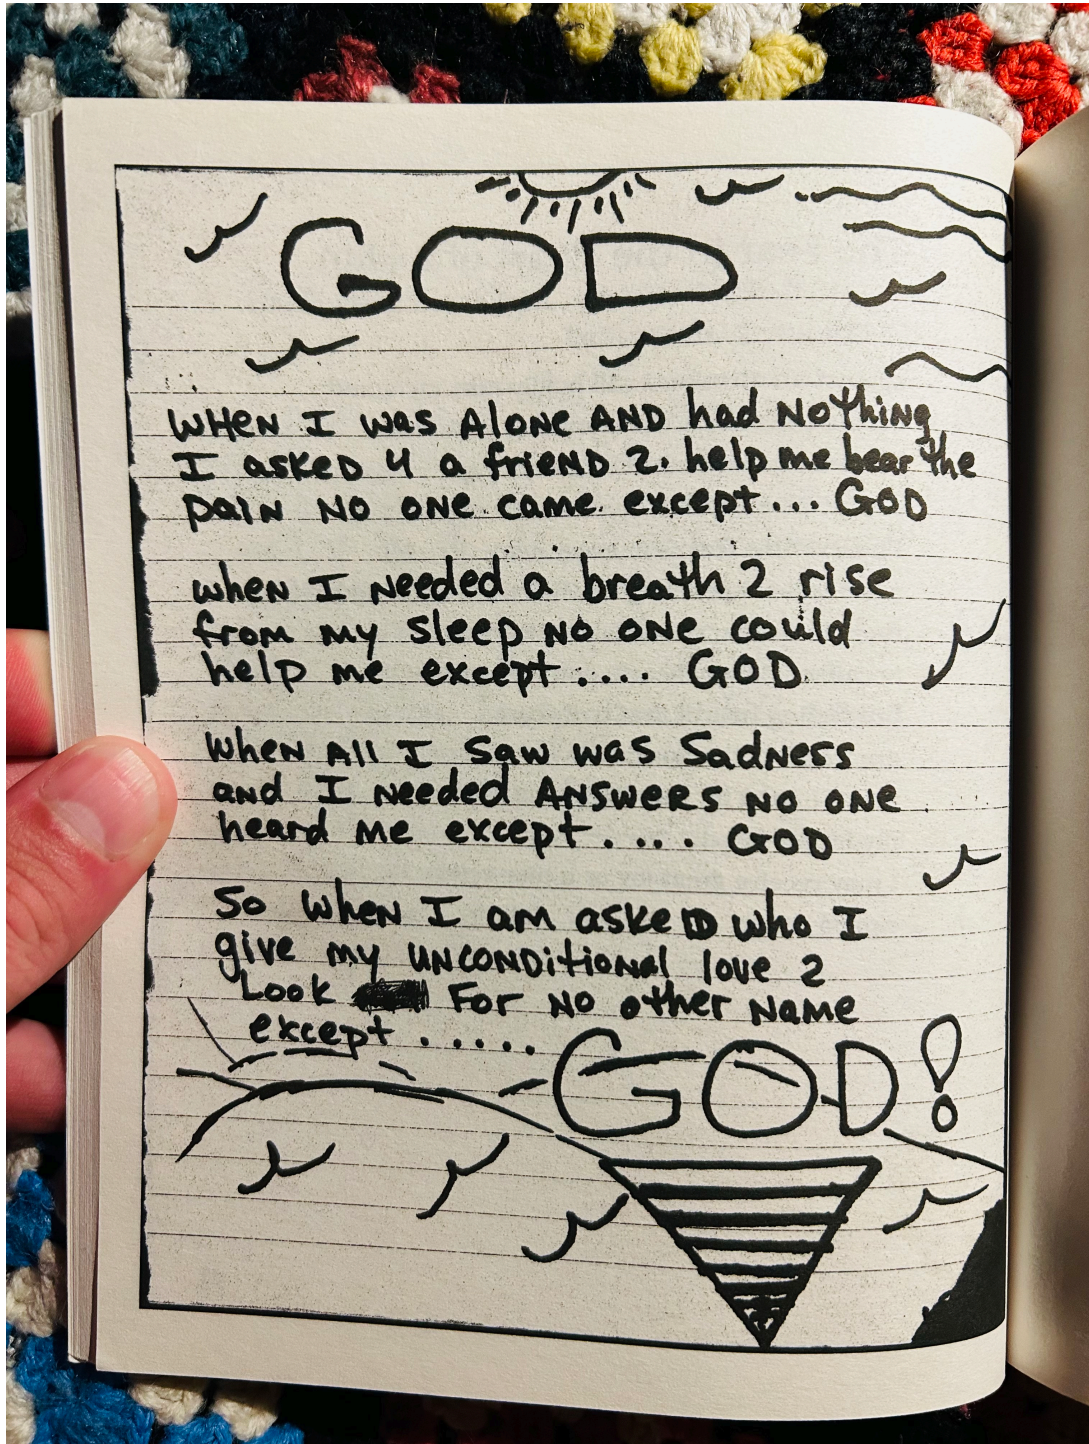 GOD
WHEN I was Alone AND had Nothing
I askeD 4 a frieND 2. help me bear the
paiN NO ONE came. except... GOD
when I Needed a breath 2 rise
from my sleep NO ONE could
help me except.... GOD
When All I Saw was SadNess
and I Needed ANSWERS NO ONE
heard me except.... GOD
So WheN I am askeD who I
give my UNCONDitioNal love 2
Look For NO other Name
except .....
GOD!